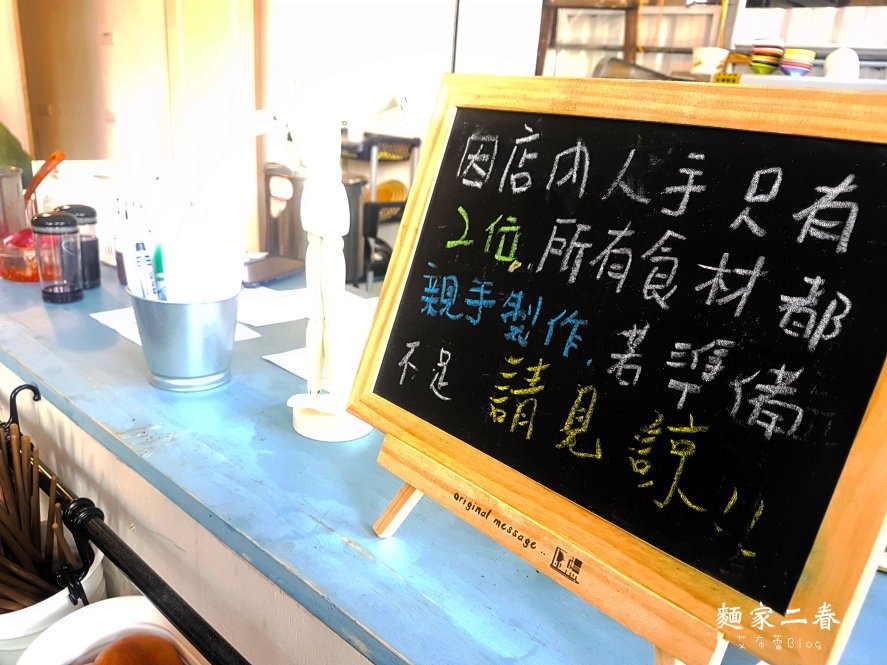 因店內人手只有
2位.所有食材都
親手製作.若準備
不足 請見諒!!
original message..
麵家二春
艾布蕾Blog